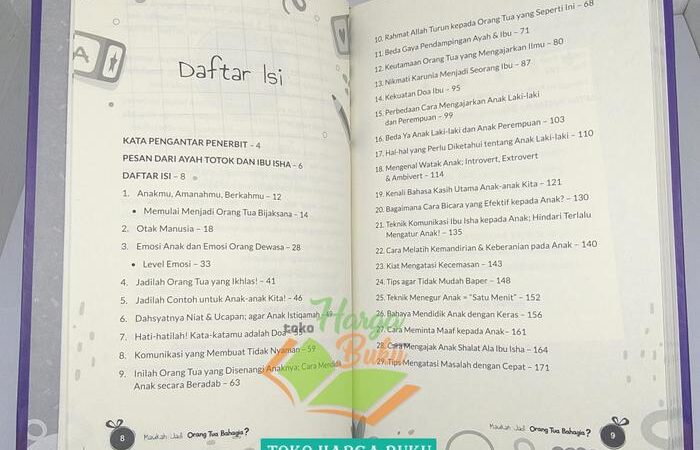 A
Daftar Isi
KATA PENGANTAR PENERBIT – 4
PESAN DARI AYAH TOTOK DAN IBU ISHA – 6
DAFTAR ISI – 8
1. Anakmu, Amanahmu, Berkahmu – 12
• Memulai Menjadi Orang Tua Bijaksana – 14
2. Otak Manusia – 18
3. Emosi Anak dan Emosi Orang Dewasa – 28
• Level Emosi – 33
4. Jadilah Orang Tua yang Ikhlas! – 41
5. Jadilah Contoh untuk Anak-anak Kita! – 46
6. Dahsyatnya Niat & Ucapan; agar Anak Istiqamah – 49
7. Hati-hatilah! Kata-katamu adalah Doa – 55
8. Komunikasi yang Membuat Tidak Nyaman – 59
9. Inilah Orang Tua yang Disenangi Anaknya; Cara Mendidik
Anak secara Beradab – 63
8 Maukah Jadi Orang Tua Bahagia?
10. Rahmat Allah Turun kepada Orang Tua yang Seperti Ini – 68
11. Beda Gaya Pendampingan Ayah & Ibu – 71
12. Keutamaan Orang Tua yang Mengajarkan Ilmu – 80
13. Nikmati Karunia Menjadi Seorang Ibu – 87
14. Kekuatan Doa Ibu – 95
15. Perbedaan Cara Mengajarkan Anak Laki-laki
dan Perempuan – 99
16. Beda Ya Anak Laki-laki dan Anak Perempuan – 103
17. Hal-hal yang Perlu Diketahui tentang Anak Laki-laki – 110
18. Mengenal Watak Anak; Introvert, Extrovert
& Ambivert – 114
19. Kenali Bahasa Kasih Utama Anak-anak Kita – 121
20. Bagaimana Cara Bicara yang Efektif kepada Anak? – 130
21. Teknik Komunikasi Ibu Isha kepada Anak; Hindari Terlalu
Mengatur Anak! – 135
22. Cara Melatih Kemandirian & Keberanian pada Anak – 140
23. Kiat Mengatasi Kecemasan – 143
24. Tips agar Tidak Mudah Baper – 148
25. Teknik Menegur Anak = "Satu Menit" – 152
26. Bahaya Mendidik Anak dengan Keras – 156
27. Cara Meminta Maaf kepada Anak – 161
28. Cara Mengajak Anak Shalat Ala Ibu Isha – 164
29. Tips Mengatasi Masalah dengan Cepat – 171
Maukah Jadi Orang Tua Bahagia? 9
toko Harga
Buku
TOKO HARGA BUKU